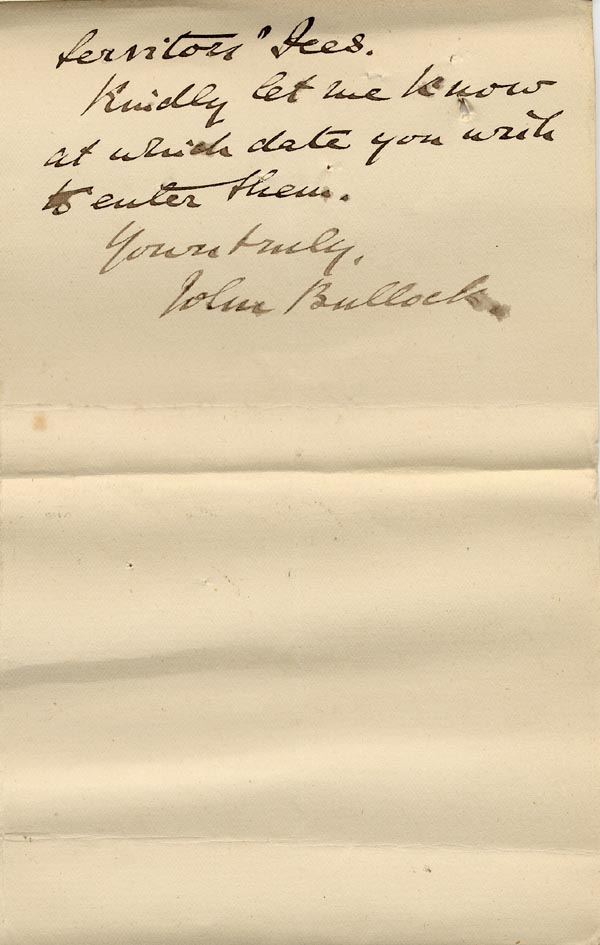 Servitors" Fees.
Kindly let me know
at which date you wish
to enter them.
Yours truly,
John Bullock.